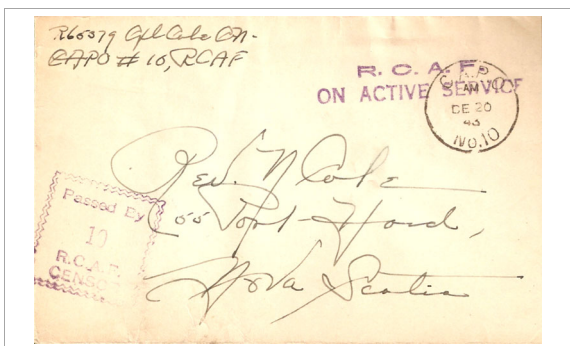 R65379 Cpl Cole ON.
CAPO # 10, RCAF
R. C. A. F.
ON ACTIVE SERVICE
C.A.P.O.
AM
DE 20
43
NO. 10
Rev. N Cole
Port Hood,
Nova Scotia
Passed By
10
R.C.A.F.
CENSOR